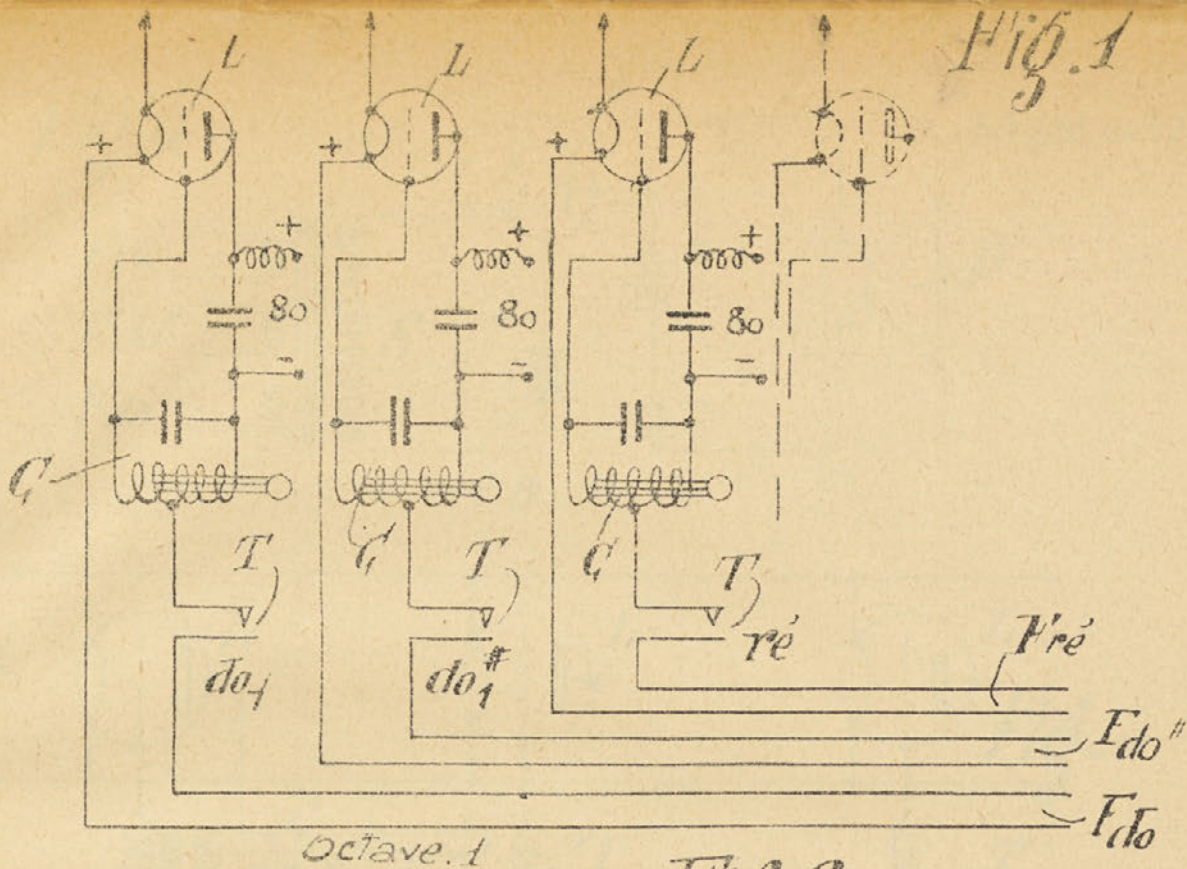 Fig. 1
L L L
+ + +
+ + +
80 80 80
- - -
C C C
T T T
do1 do#1 ré
Fré
Fdo#
Fdo
Octave. 1